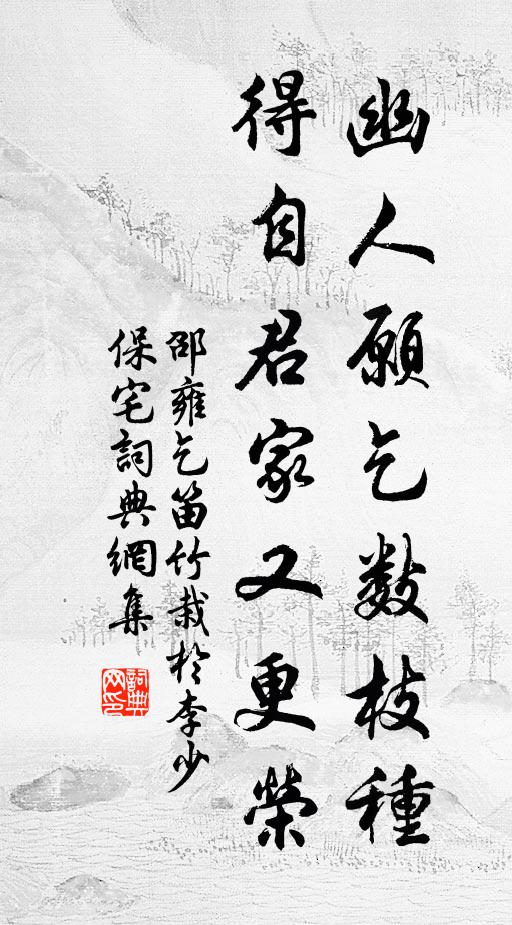 幽人願乞數枝種
得自君家又更榮
邵雍乞笛竹栽於李少
保宅詞典網集
詞典網印